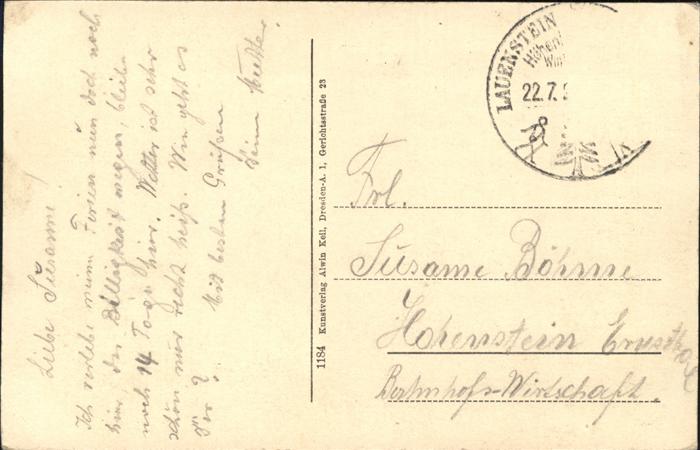 Liebe Susanne!
Ich verlebe meine Ferien nun doch noch
hier, der Billigkeit wegen, bleibe
noch 14 Tage hier. Wetter ist sehr
schön nur recht heiß. Wie geht es
Dir?
Mit besten Grüßen
Deine
1184 Kunstverlag Alwin Keil, Dresden-A. 1, Gerichtsstraße 23
LAUENSTEIN
22.7.
Frl.
Susanne Böhme
Hohenstein Ernstthal
Bahnhofs-Wirtschaft.